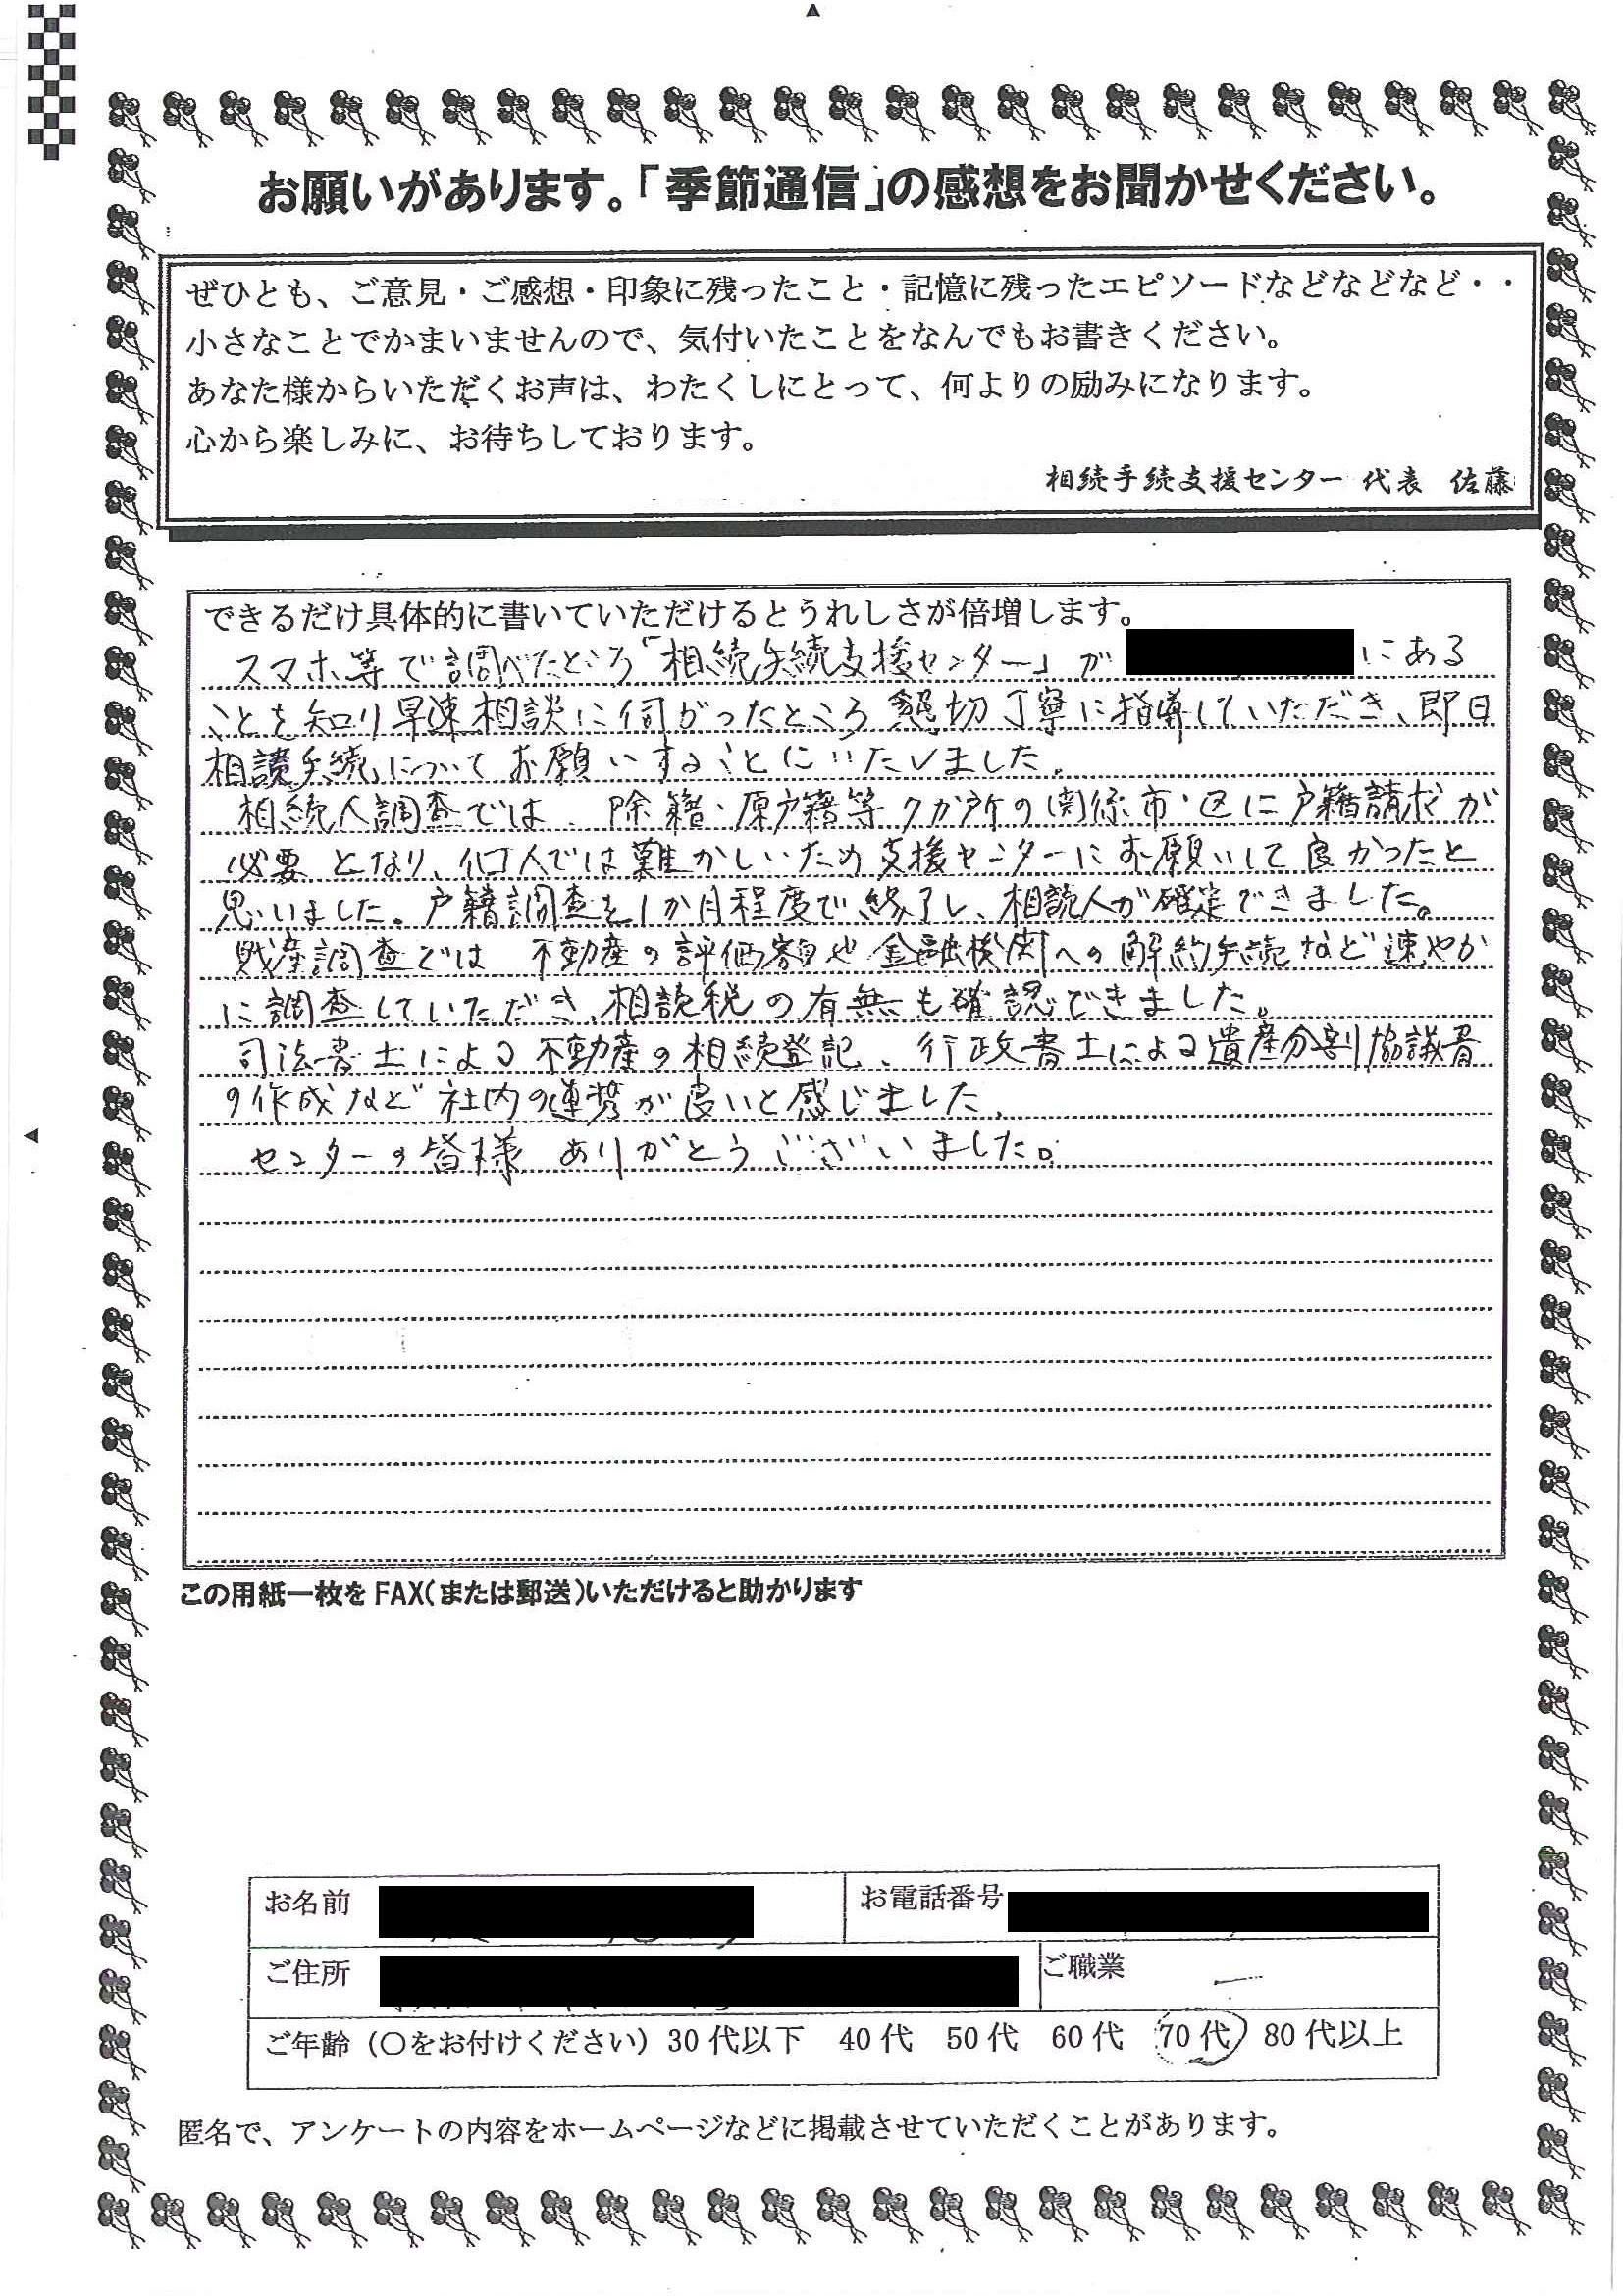 お願いがあります。「季節通信」の感想をお聞かせください。
ぜひとも、ご意見・ご感想・印象に残ったこと・記憶に残ったエピソードなどなどなど・・
小さなことでかまいませんので、気付いたことをなんでもお書きください。
あなた様からいただくお声は、わたくしにとって、何よりの励みになります。
心から楽しみに、お待ちしております。
相続手続支援センター 代表 佐藤
できるだけ具体的に書いていただけるとうれしさが倍増します。
スマホ等で調べたところ「相続手続支援センター」が にある
ことを知り早速相談に伺がったところ懇切丁寧に指導していただき、即日
相続手続についてお願いすることにいたしました。
相続人調査では、除籍・原戸籍等7か所の関係市・区に戸籍請求が
必要となり、個人では難かしいため支援センターにお願いして良かったと
思いました。戸籍調査を1か月程度で終了し、相続人が確定できました。
財産調査では 不動産の評価額や金融機関への解約手続など速やか
に調査していただき、相続税の有無も確認できました。
司法書士による不動産の相続登記、行政書士による遺産分割協議書
の作成など社内の連携が良いと感じました。
センターの皆様 ありがとうございました。
この用紙一枚をFAX(または郵送)いただけると助かります
お名前 お電話番号
ご住所 ご職業 ー
ご年齢（○をお付けください）30代以下 40代 50代 60代 70代 80代以上
匿名で、アンケートの内容をホームページなどに掲載させていただくことがあります。